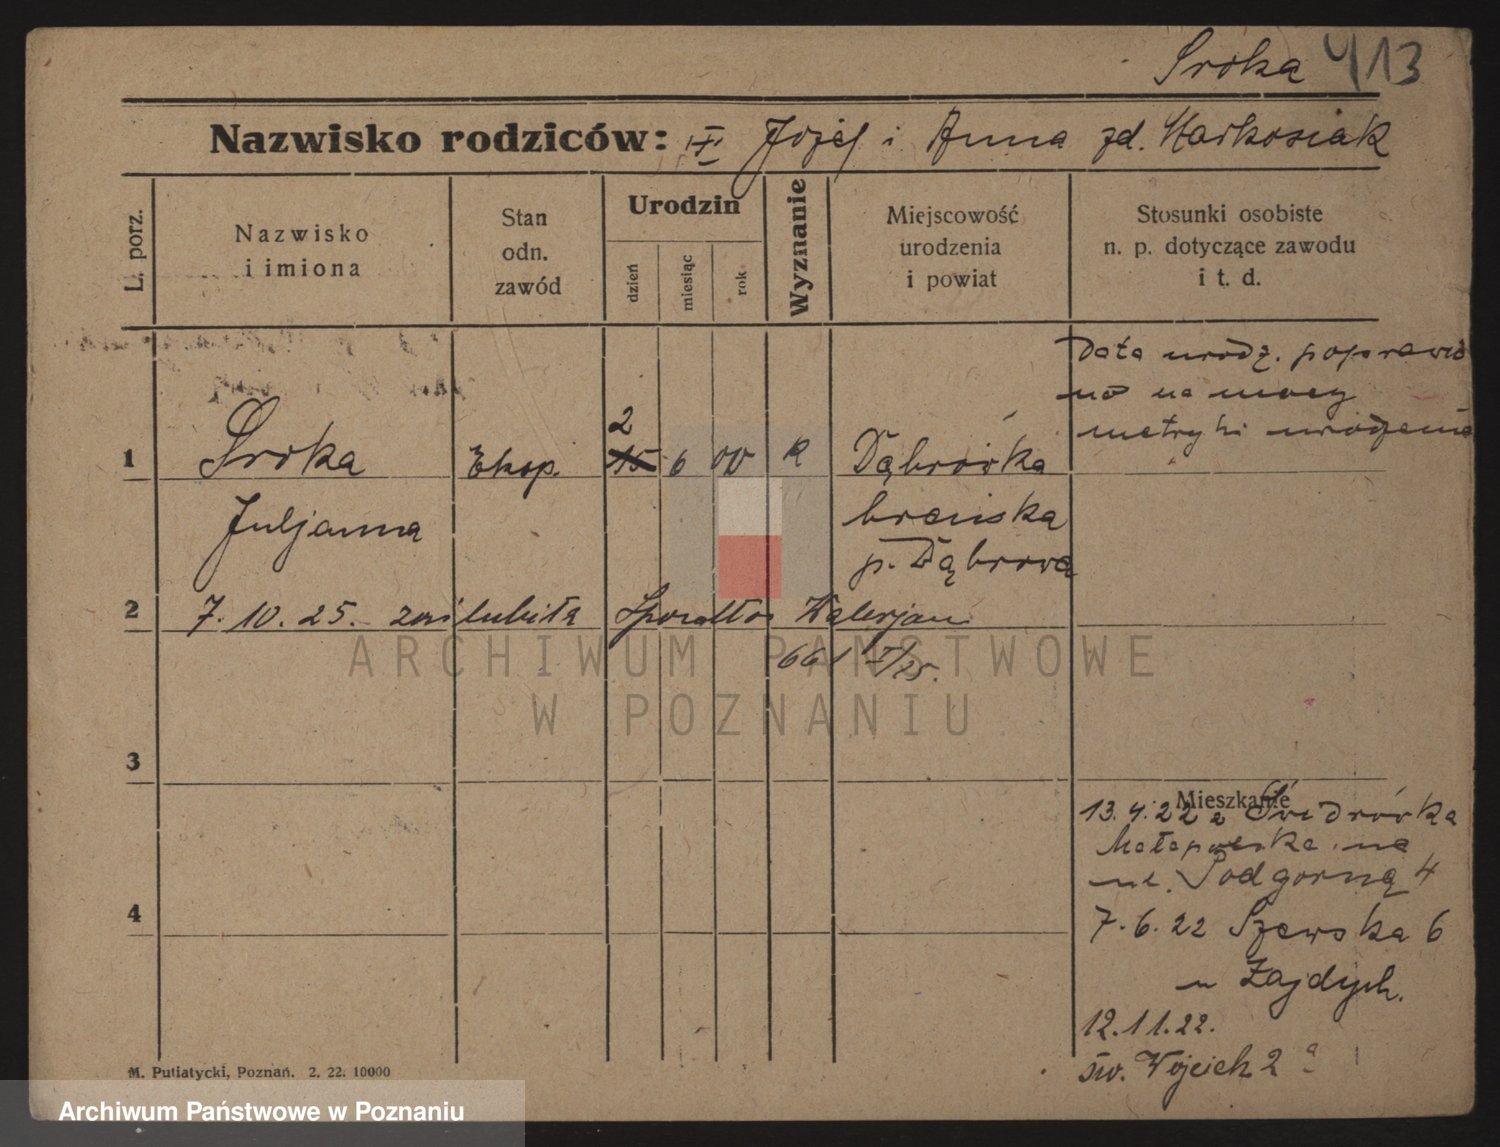 Sroka 413
Nazwisko rodziców: Józef i Anna zd.
L. porz.
Nazwisko
i imiona
Stan
odn.
zawód
Urodzin
dzień
miesiąc
rok
Wyznanie
Miejscowość
urodzenia
i powiat
Stosunki osobiste
n. p. dotyczące zawodu
i t. d.
Data urodz. poprawio
no na mocy
metryki urodzenia
2
1 Sroka Eksp. 15 6 00 k Dąbrówka
Juljanna
p. Dąbrowa
2 7.10.25. zaślubiła Walerjan
661 I/25.
3
Mieszkanie
13.4.22 z
Małopolska na
ul. Podgórną 4
4
7.6.22 Szewska 6
u
12.11.22.
św. Wojciech 2a
M. Putiatycki, Poznań. 2. 22. 10000
ARCHIWUM PAŃSTWOWE
W POZNANIU
Archiwum Państwowe w Poznaniu